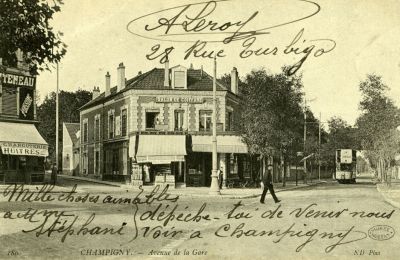 A Leroy
28 Rue Turbigo
TENEAU
CHARCUTERIE
HUITRES
Mille choses aimables
a M Stéphani
dépêche-toi de venir nous
voir à Champigny
180 CHAMPIGNY. — Avenue de la Gare ND Phot